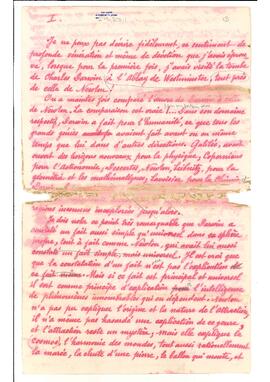 I.
Je ne puis pas décrire fidèlement, ce sentiment de
profonde vénération et même de dévotion que j'avais éprou-
vé, lorsque pour la première fois, j'avais visité la tombe
de Charles Darwin à l'Abbaye de Westminster, tout près
de celle de Newton.
On a maintes fois comparé l'œuvre de Darwin à celle
de Newton. La comparaison est vraie. Sous son même
respect, Darwin a fait pour l'humanité, ce que tous les
grands génies avaient fait avant ou en même
temps que lui dans d'autres directions: Galilée, avait
ouvert des horizons nouveaux, pour la physique, Copernicus
pour l'astronomie, Descartes, Newton, Leibnitz, pour la
géométrie et les mathématiques, Lavoisier pour la Chimie
Darwin
régions inexplorées jusqu'alors.
Je dois noter ce point très remarquable que Darwin a
constaté un fait aussi simple qu'universel dans sa sphère
propre, tout à fait comme Newton, qui avait lui aussi
constaté un fait simple, mais universel. Il est vrai que
que la constatation d'un fait n'est pas l'explication de
ce fait. Mais si ce fait est principal et universel
il est comme principe d'explication l'intelligence
de phénomènes innombrables qui en dépendent. Newton
n'a pas pu expliquer l'origine et la nature de l'attraction,
il n'a même pas hasardé une explication de ce genre,
et l'attraction reste un mystère. Mais elle explique le
cosmos, l'harmonie des mondes, tout aussi rationnellement
la marée, la chute d'une pierre, le ballon qui monte, et